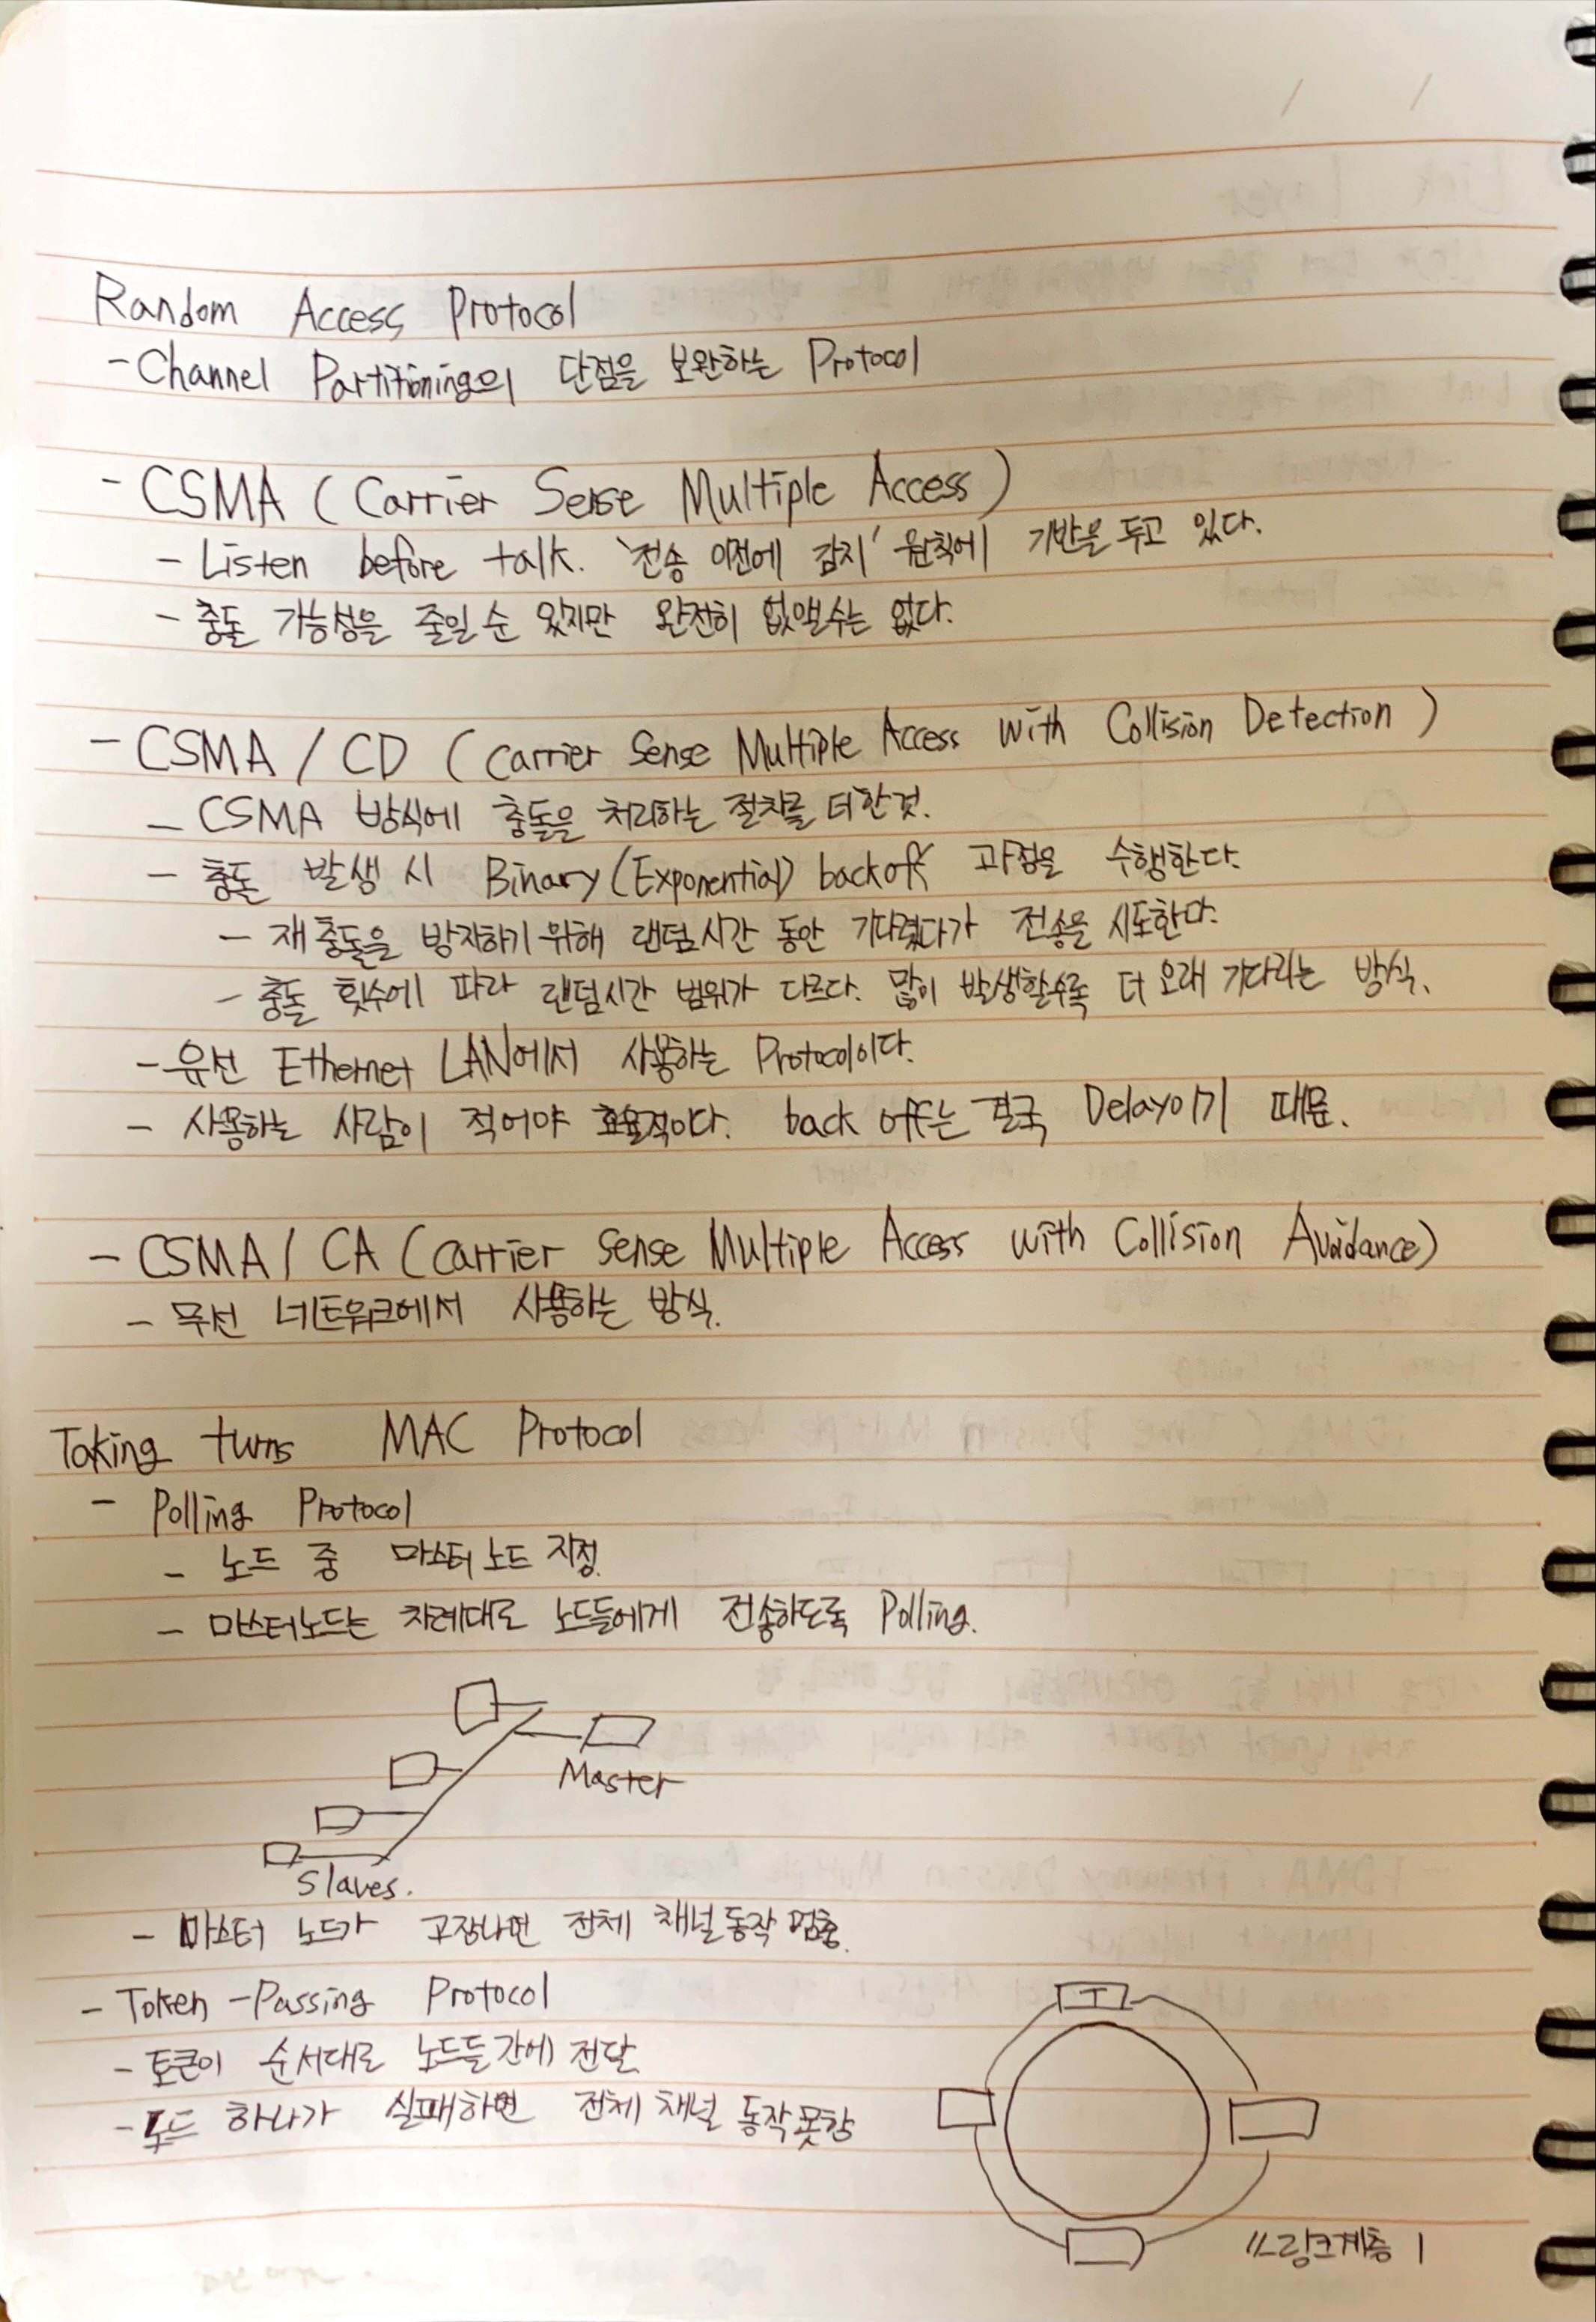 Random Access Protocol
- Channel Partitioning의 단점을 보완하는 Protocol
- CSMA (Carrier Sense Multiple Access)
- Listen before talk. '전송 이전에 감지' 원칙에 기반을 두고 있다.
- 충돌 가능성을 줄일 순 있지만 완전히 없앨수는 없다.
- CSMA / CD (Carrier Sense Multiple Access with Collision Detection)
- CSMA 방식에 충돌을 처리하는 절차를 더한것.
- 충돌 발생 시 Binary (Exponential) backoff 과정을 수행한다.
- 재충돌을 방지하기 위해 랜덤시간 동안 기다렸다가 전송을 시도한다.
- 충돌 횟수에 따라 랜덤시간 범위가 다르다. 많이 발생할수록 더 오래 기다리는 방식.
- 유선 Ethernet LAN에서 사용하는 Protocol이다.
- 사용하는 사람이 적어야 효율적이다. back off는 결국 Delay이기 때문.
- CSMA / CA (Carrier Sense Multiple Access with Collision Avoidance)
- 무선 네트워크에서 사용하는 방식.
Taking turns MAC Protocol
- Polling Protocol
- 노드 중 마스터 노드 지정.
- 마스터노드는 차례대로 노드들에게 전송하도록 Polling.
Master
Slaves.
- 마스터 노드가 고장나면 전체 채널 동작 멈춤.
- Token-Passing Protocol
- 토큰이 순서대로 노드들 간에 전달
- 노드 하나가 실패하면 전체 채널 동작못함
T
링크계층 1